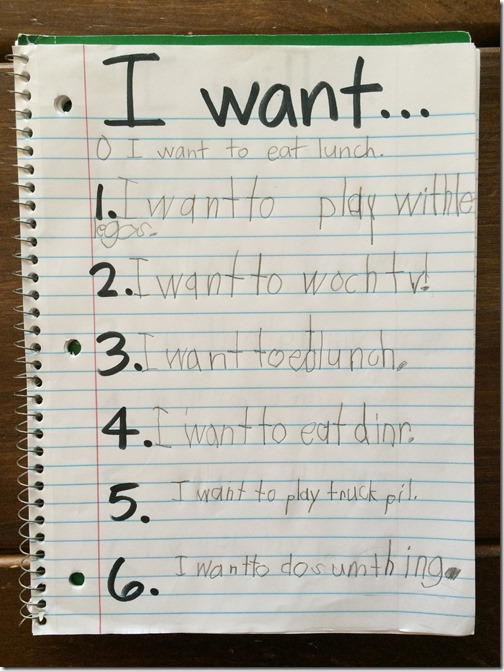 I want...
0 I want to eat lunch.
1. I want to play with le
egos.
2. I want to woch tv!
3. I want to eat lunch.
4. I want to eat dinr.
5. I want to play truck pil.
6. I want to do sumthing.